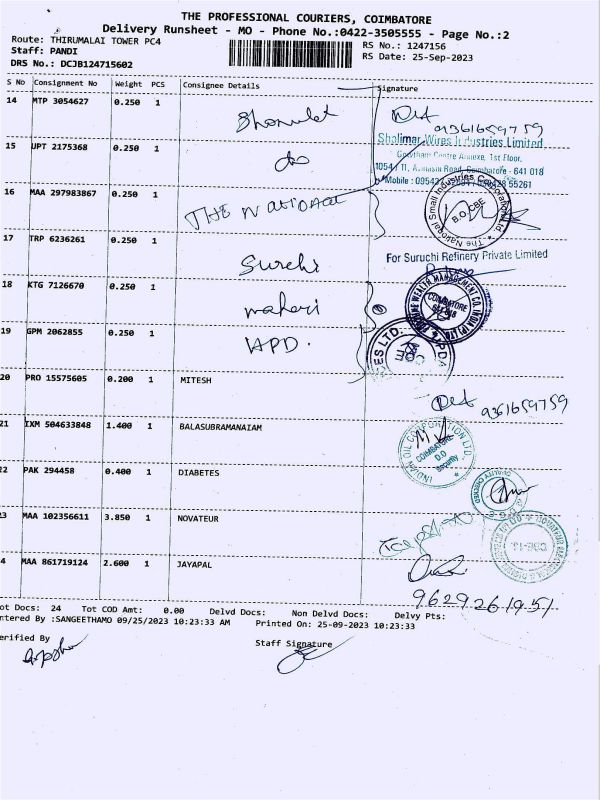 THE PROFESSIONAL COURIERS, COIMBATORE
Delivery Runsheet - MO - Phone No.:0422-3505555 - Page No.:2
Route: THIRUMALAI TOWER PC4
RS No.: 1247156
Staff: PANDI
RS Date: 25-Sep-2023
DRS No.: DCJB124715602
S No Consignment No Weight PCS Consignee Details Signature
14 MTP 3054627 0.250 1
9361659759
Shalimar Wires Industries Limited
15 UPT 2175368 0.250 1 do
Gowtham Centre Annexe, 1st Floor,
1054 / 11, Avinashi Road, Coimbatore - 641 018
Mobile : 55261
16 MAA 297983867 0.250 1 THE NATIONAL
The National Small Industries Corporation Ltd.
B.O CBE
17 TRP 6236261 0.250 1 Suruchi
For Suruchi Refinery Private Limited
18 KTG 7126670 0.250 1
WEALTH MANAGEMENT CO. INDIA (P) LTD
COIMBATORE
19 GPM 2062855 0.250 1
20 PRO 15575605 0.200 1 MITESH
9361659759
21 IXM 504633848 1.400 1 BALASUBRAMANAIAM
INDIAN OIL CORPORATION LTD.
COIMBATORE
D.O
Security
22 PAK 294458 0.400 1 DIABETES
QUALITY CHECKED
23 MAA 102356611 3.850 1 NOVATEUR
4 MAA 861719124 2.600 1 JAYAPAL
9629261951
ot Docs: 24 Tot COD Amt: 0.00 Delvd Docs: Non Delvd Docs: Delvy Pts:
ntered By :SANGEETHAMO 09/25/2023 10:23:33 AM Printed On: 25-09-2023 10:23:33
erified By
Staff Signature